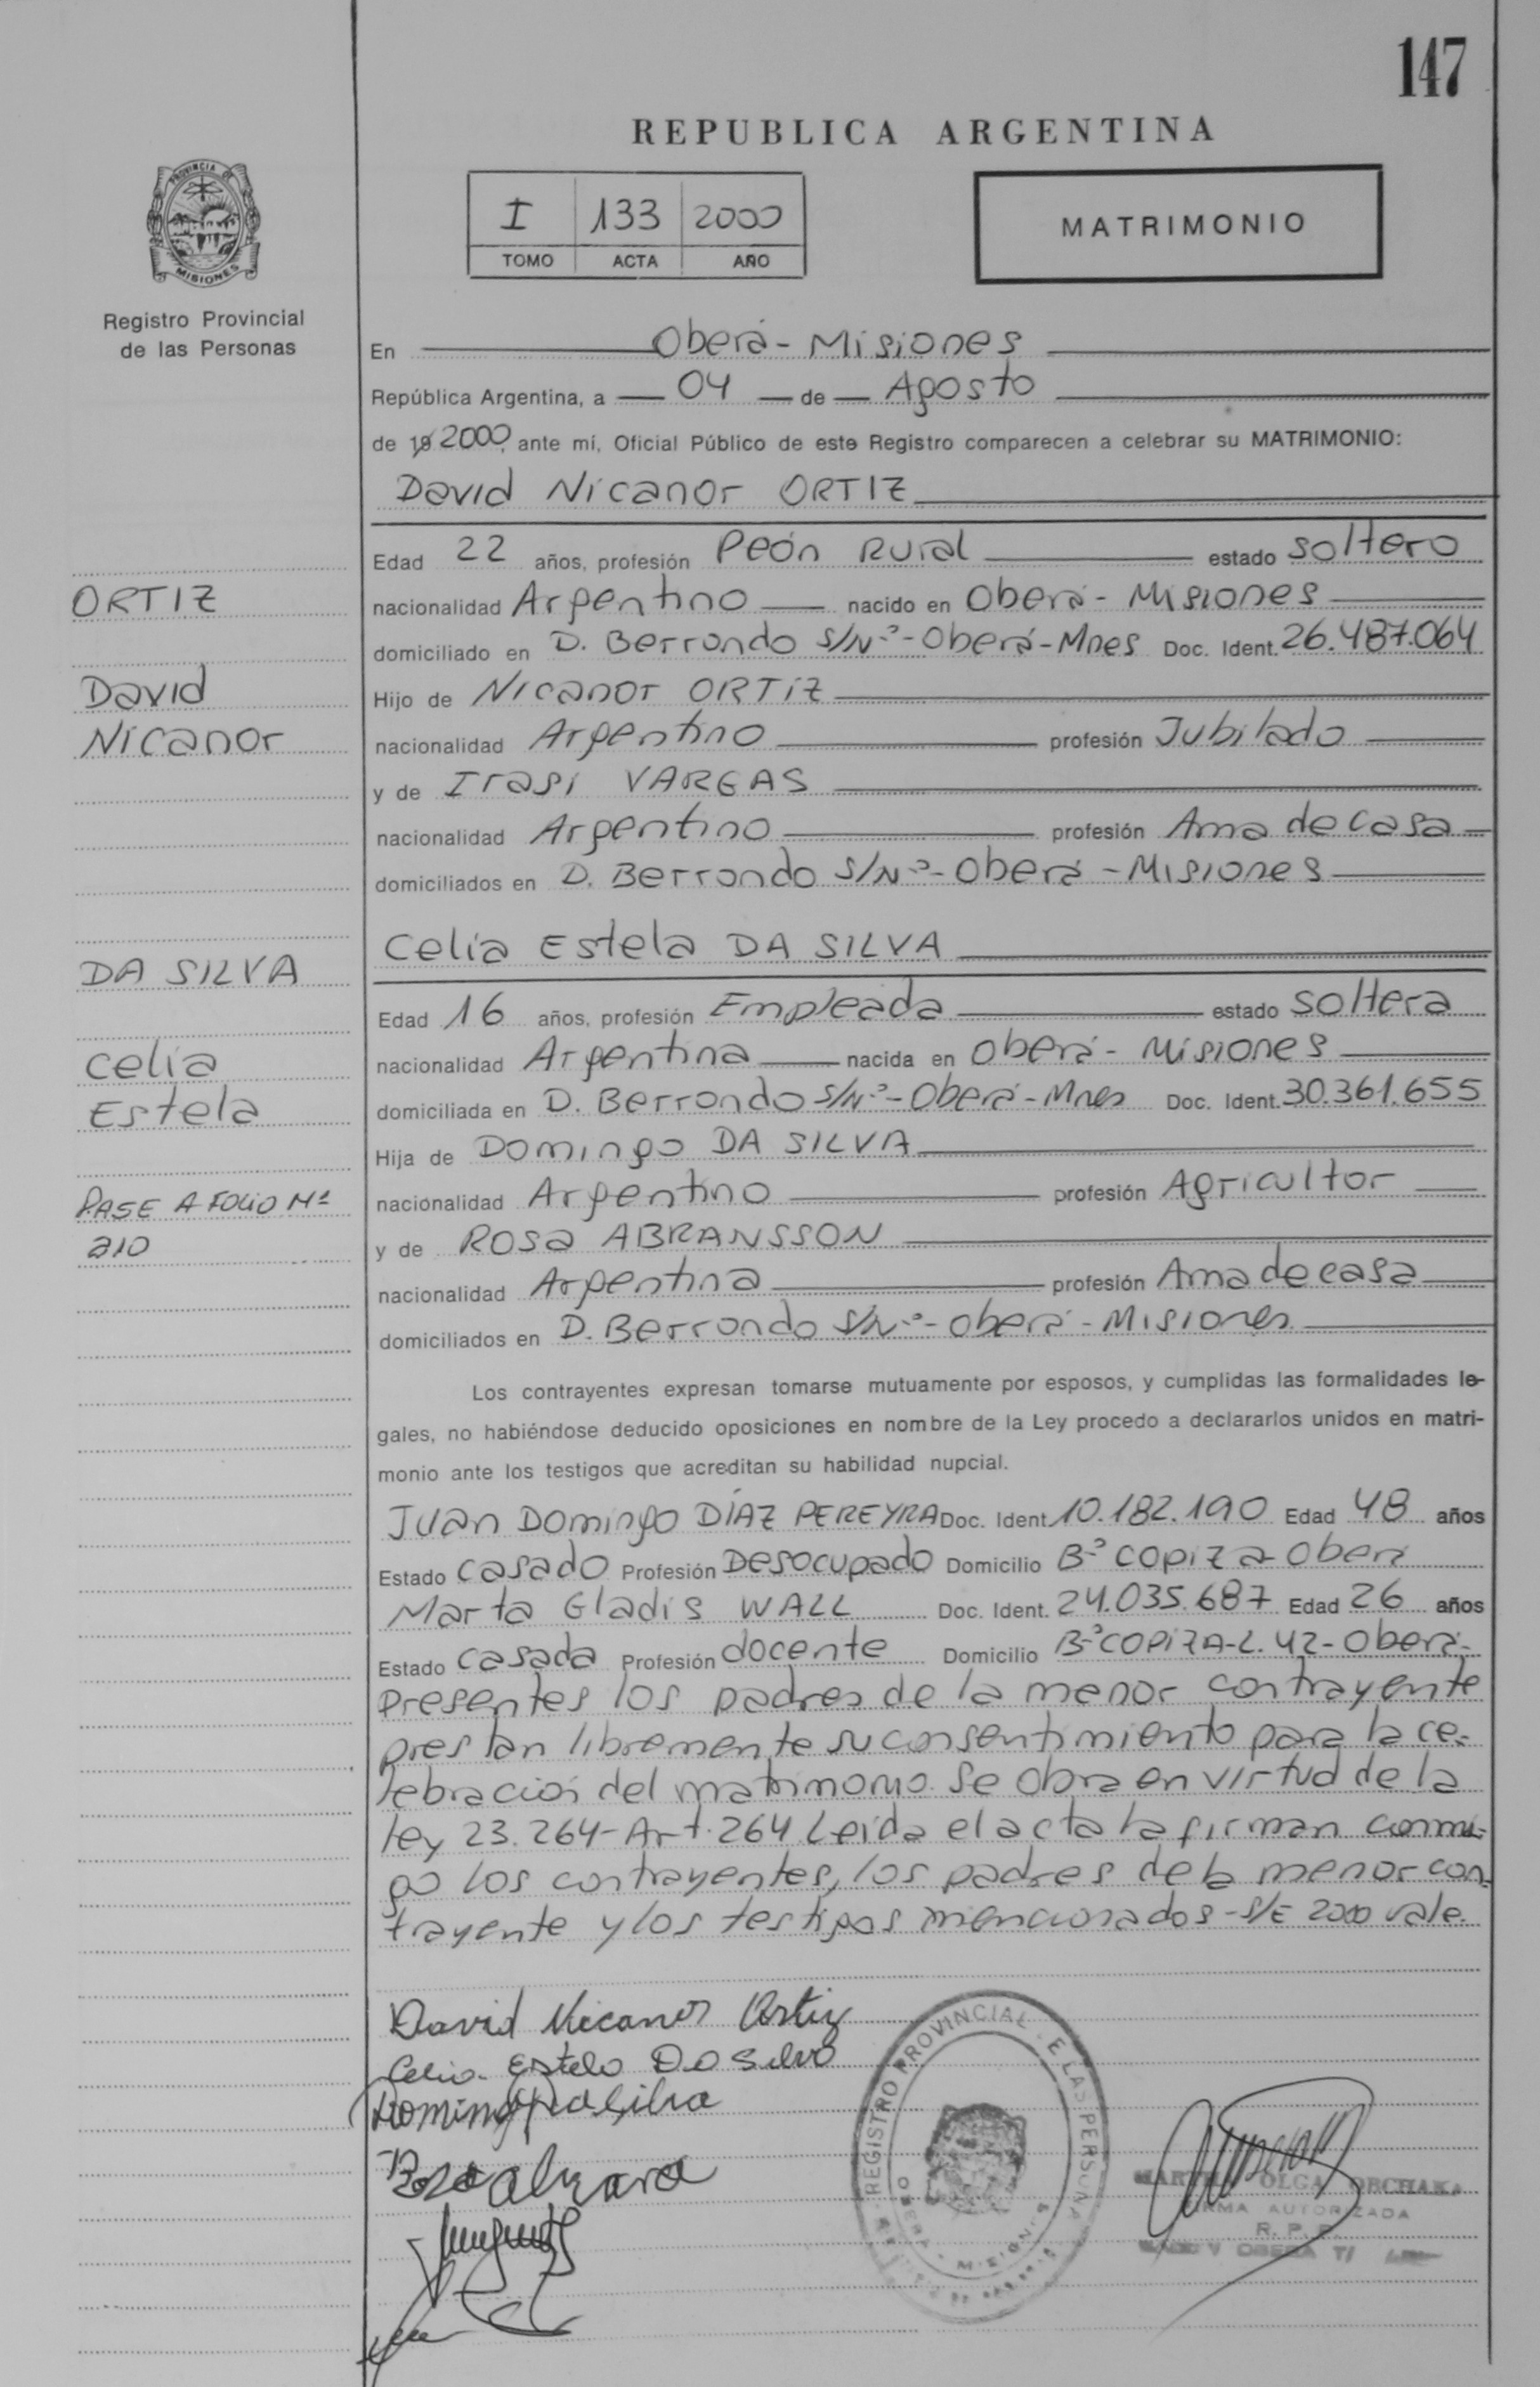 147
REPUBLICA ARGENTINA
PROVINCIA DE
MISIONES
Registro Provincial
de las Personas
I 133 2000
TOMO ACTA AÑO
MATRIMONIO
En Oberá - Misiones
República Argentina, a 04 de Agosto
de 19 2000, ante mí, Oficial Público de este Registro comparecen a celebrar su MATRIMONIO:
David Nicanor ORTIZ
Edad 22 años, profesión Peón Rural estado soltero
ORTIZ
nacionalidad Argentino nacido en Oberá - Misiones
domiciliado en D. Berrondo S/Nº - Oberá - Mnes Doc. Ident. 26.487.064
David
Hijo de Nicanor ORTIZ
Nicanor
nacionalidad Argentino profesión Jubilado
y de Irasi VARGAS
nacionalidad Argentino profesión Ama de casa
domiciliados en D. Berrondo S/Nº - Oberá - Misiones
Celia Estela DA SILVA
DA SILVA
Edad 16 años, profesión Empleada estado soltera
Celia
nacionalidad Argentina nacida en Oberá - Misiones
Estela
domiciliada en D. Berrondo S/Nº - Oberá - Mnes Doc. Ident. 30.361.655
Hija de Domingo DA SILVA
PASE A FOLIO Nº
nacionalidad Argentino profesión Agricultor
210
y de ROSA ABRANSSON
nacionalidad Argentina profesión Ama de casa
domiciliados en D. Berrondo S/Nº - Oberá - Misiones
Los contrayentes expresan tomarse mutuamente por esposos, y cumplidas las formalidades le-
gales, no habiéndose deducido oposiciones en nombre de la Ley procedo a declararlos unidos en matri-
monio ante los testigos que acreditan su habilidad nupcial.
Juan Domingo DÍAZ PEREYRA Doc. Ident. 10.182.190 Edad 48 años
Estado casado Profesión Desocupado Domicilio Bº Copiza Oberá
Marta Gladis WALL Doc. Ident. 24.035.687 Edad 26 años
Estado casada Profesión docente Domicilio Bº COPIZA-L. 42 - Oberá-
presentes los padres de la menor contrayente
prestan libremente su consentimiento para la ce-
lebración del matrimonio. Se obra en virtud de la
ley 23.264 - Art. 264 Leída el acta la firman conmi-
go los contrayentes, los padres de la menor con-
trayente y los testigos mencionados - S/E 2000 vale.
David Nicanor Ortiz
Celia Estela Da Silva
Domingo da Silva
Rosa
REGISTRO PROVINCIAL DE LAS PERSONAS
OBERA - MISIONES
MARTHA OLGA
FIRMA AUTORIZADA
R. P. P.
OBERA